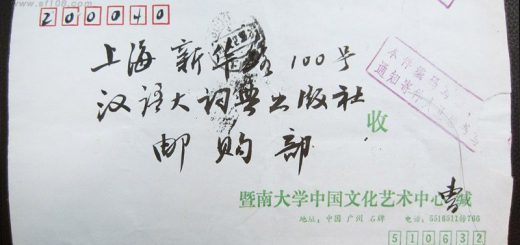 www.sf108.com
200040
上海 新华路 100号
汉语大词典出版社
收
邮购部
暨南大学中国文化艺术中心 曹 缄
地址: 中国 广州 石牌 电话:
510632